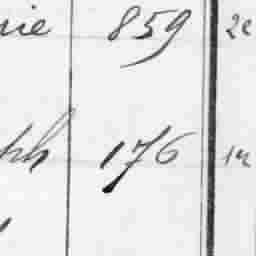 nie 859 2e
ph 176 1n